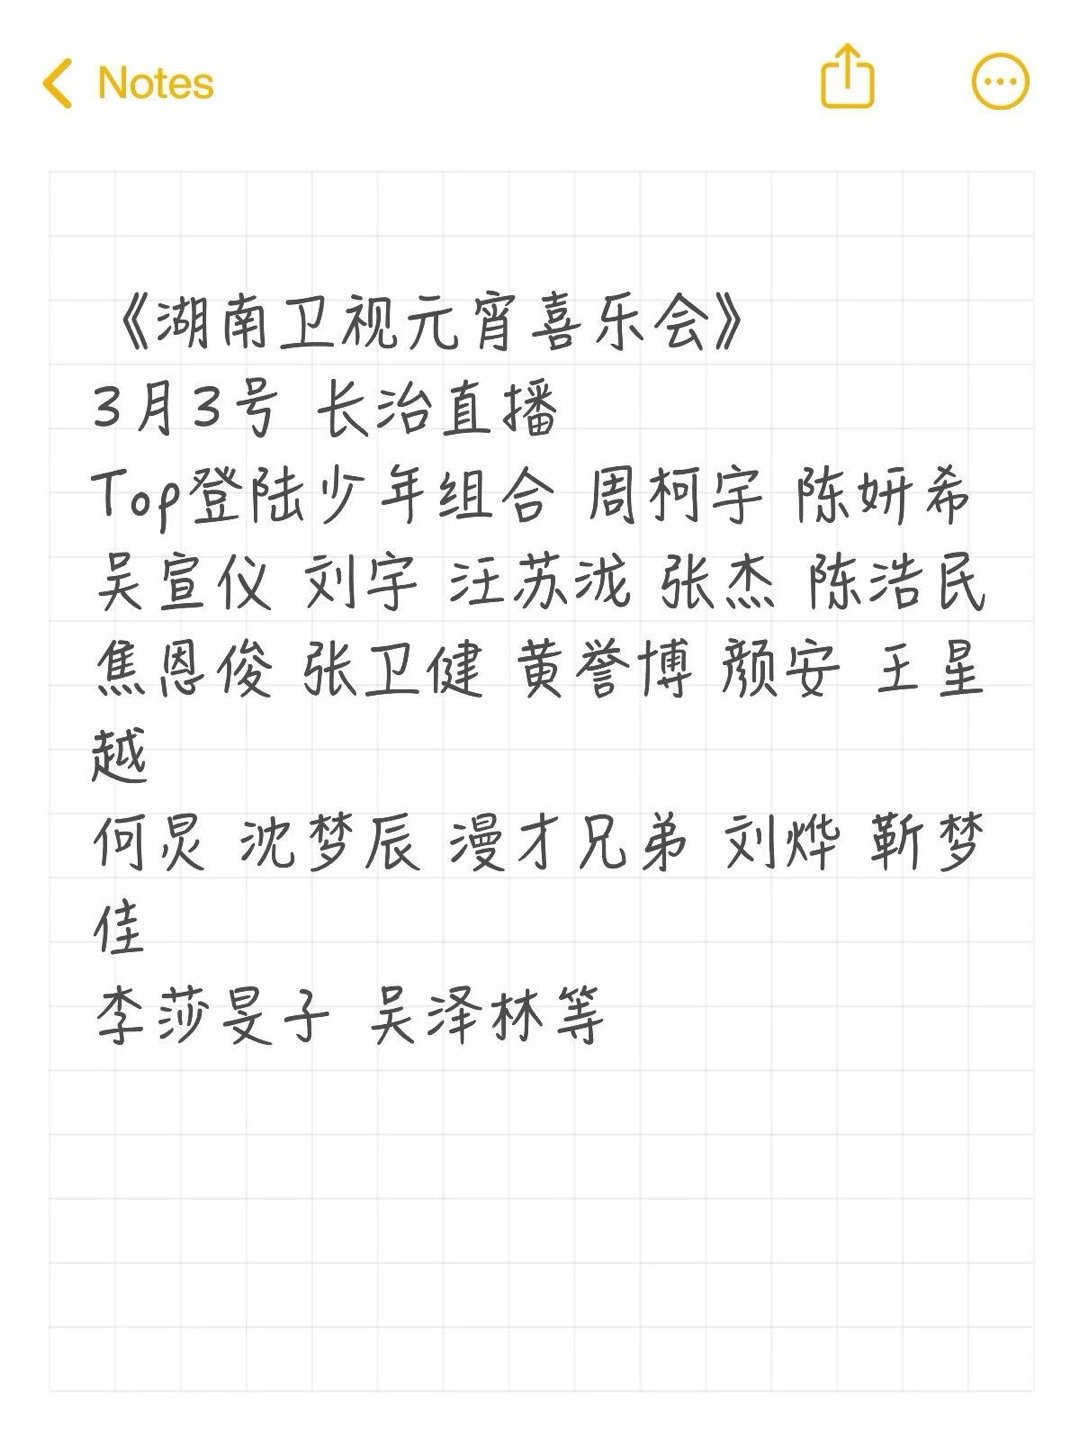 Notes
《湖南卫视元宵喜乐会》
3月3号 长治直播
Top登陆少年组合 周柯宇 陈妍希
吴宣仪 刘宇 汪苏泷 张杰 陈浩民
焦恩俊 张卫健 黄誉博 颜安 王星
越
何炅 沈梦辰 漫才兄弟 刘烨 靳梦
佳
李莎旻子 吴泽林等